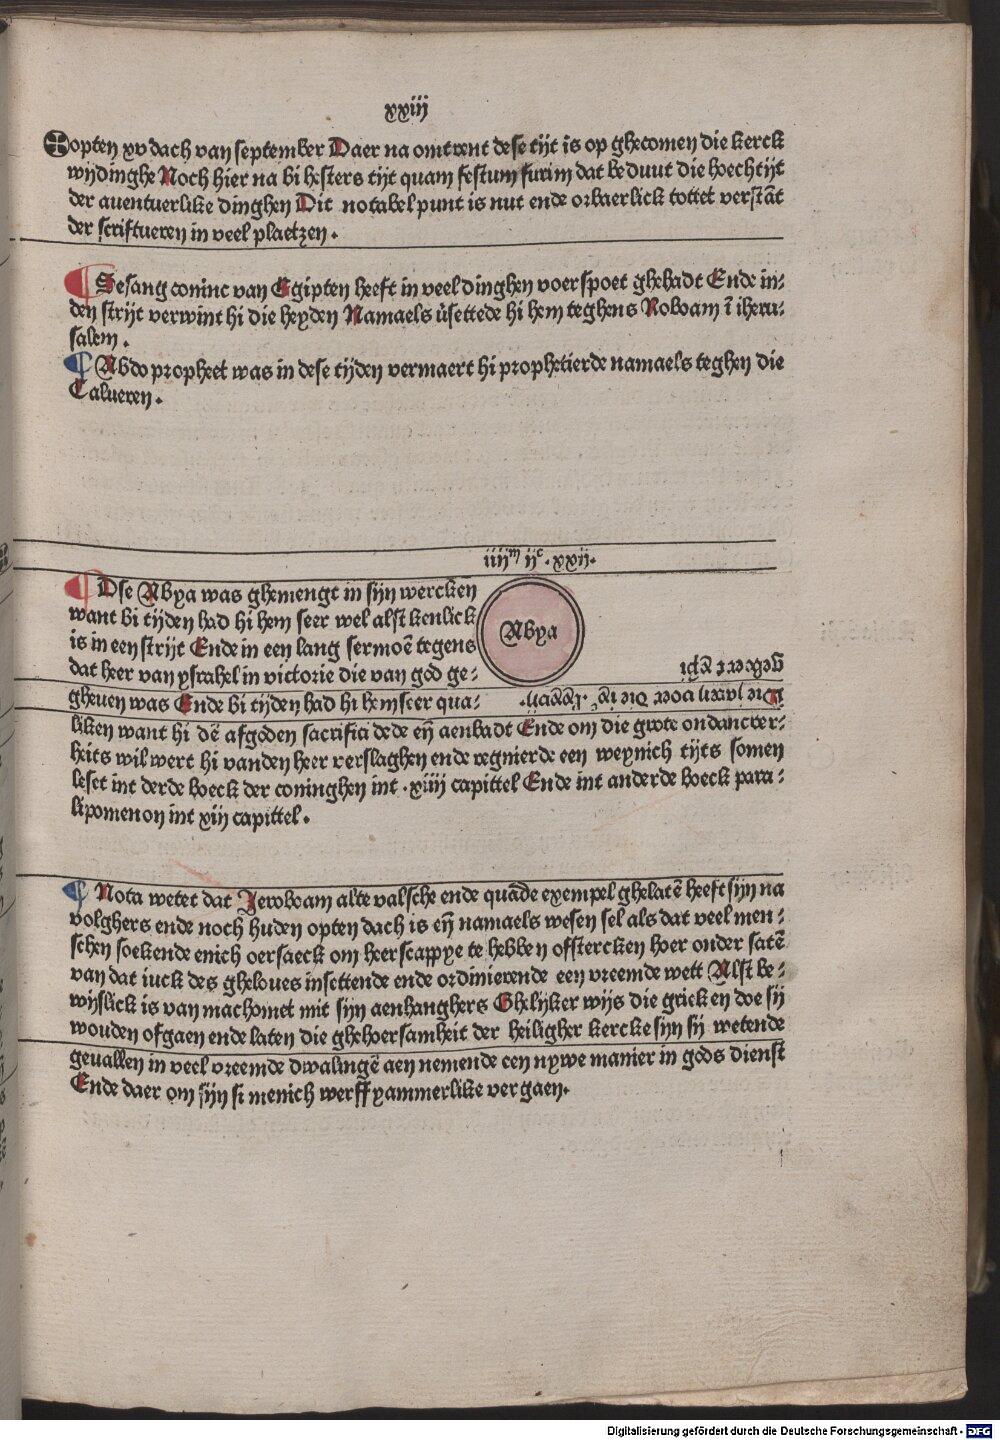 xxiij
opten xv dach van september Daer na omtrent dese tijt is op ghecomen die kerck
wijdinghe Noch hier na bi hesters tijt quam festum furim dat beduut die hoechtijt
der auentuerlike dinghen Dit notabel punt is nut ende orbaerlick tottet verstāt
der scriftueren in veel plaetzen .
¶ Sesang coninc van Egipten heeft in veel dinghen voerspoet ghehadt Ende in-
den strijt verwint hi die heyden Namaels v̄settede hi hem teghens Roboam ī iheru-
salem .
¶ Abdo propheet was in dese tijden vermaert hi prophetierde namaels teghen die
Calueren .
iiijᵐ ijᶜ . xxij.
¶ Dse Abya was ghemengt in sijn wercken
want bi tijden had hi hem seer wel alst kenlick
is in een strijt Ende in een lang sermoē tegens
dat heer van ysrahel in victorie die van god ge-
gheuen was Ende bi tijden had hi hem seer qua-
Abya
Die iaren voer die
geboert
liken want hi dē afgoden sacrifici dede eñ aenbadt Ende om die grote ondancber-
heits wil wert hi vanden heer verslaghen ende regnierde een weynich tijts somen
leset int derde boeck der coninghen int . xiiij capittel Ende int anderde boeck para-
lipomenon int xiij capittel .
¶ Nota wetet dat Jeroboam alte valsche ende quade exempel ghelatē heeft sijn na
volghers ende noch huden opten dach is eñ namaels wesen sel als dat veel men-
schen soekende enich oersaeck om heerscappye te hebben of stercken hoer onder satē
van dat iuck des gheloues insettende ende ordinierende een vreemde wett Alst be-
wijslick is van machomet mit sijn aenhanghers Ghelijker wijs die grieken doe sij
wouden of gaen ende laten die ghehoersamheit der heiligher kercke sijn sij wetende
geuallen in veel vreemde dwalingē aen nemende een nywe manier in gods dienst
Ende daer om sijn si menich werff yammerlike vergaen.
Digitalisierung gefördert durch die Deutsche Forschungsgemeinschaft - DFG